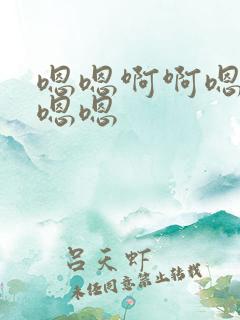 嗯嗯啊啊嗯
嗯嗯
吕天虾
未经同意禁止转载